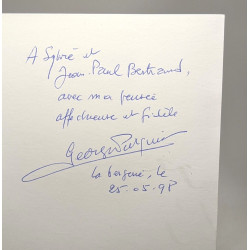 A Sylvie et
Jean-Paul Bertrand,
avec ma pensée
affectueuse et fidèle
Georges
le
25.05.98